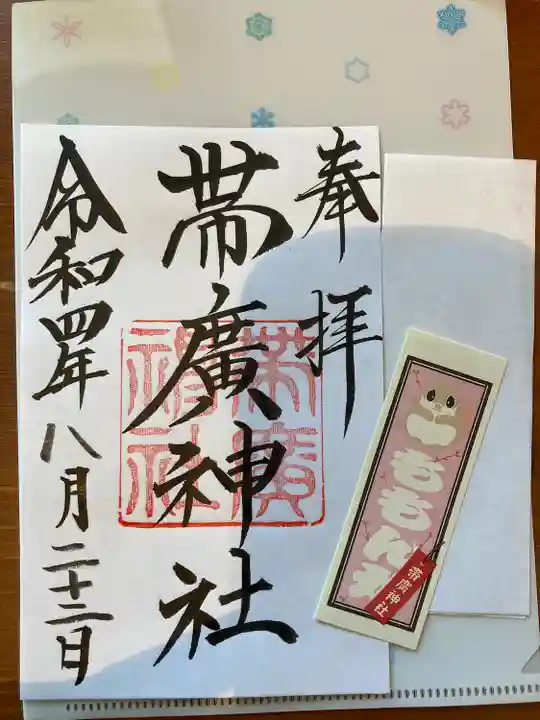 奉拝
帯廣神社
令和四年八月二十二日
帯廣神社
ももんが
帯廣神社